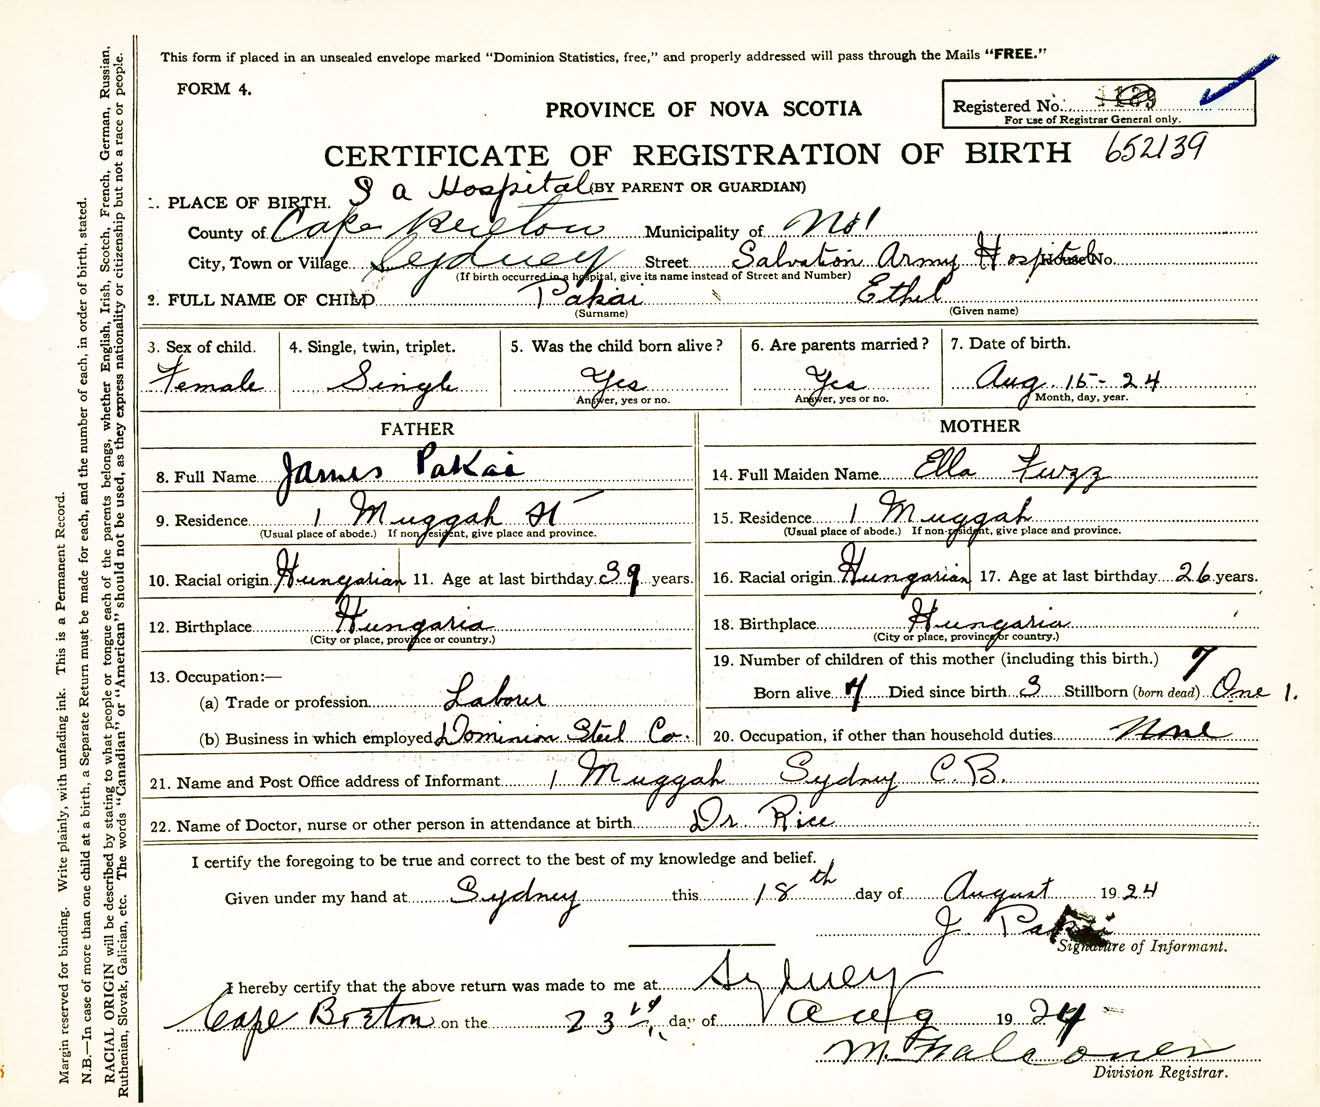 This form if placed in an unsealed envelope marked "Dominion Statistics, free," and properly addressed will pass through the Mails "FREE."
FORM 4.
PROVINCE OF NOVA SCOTIA
Registered No.
For use of Registrar General only.
CERTIFICATE OF REGISTRATION OF BIRTH 652139
S a Hospital (BY PARENT OR GUARDIAN)
1. PLACE OF BIRTH.
County of Cape Breton Municipality of No 1
City, Town or Village Sydney Street Salvation Army Hospital House No.
(If birth occurred in a hospital, give its name instead of Street and Number)
2. FULL NAME OF CHILD Pakai Ethel
(Surname) (Given name)
3. Sex of child. 4. Single, twin, triplet. 5. Was the child born alive? 6. Are parents married? 7. Date of birth.
Female Single Yes Yes Aug. 15-24
Answer, yes or no. Answer, yes or no. Month, day, year.
FATHER
8. Full Name James Pakai
9. Residence 1 Muggah St
(Usual place of abode.) If non-resident, give place and province.
10. Racial origin Hungarian 11. Age at last birthday 39 years.
12. Birthplace Hungaria
(City or place, province or country.)
13. Occupation:—
(a) Trade or profession Labour
(b) Business in which employed Dominion Steel Co.
MOTHER
14. Full Maiden Name Ella Fuzz
15. Residence 1 Muggah
(Usual place of abode.) If non-resident, give place and province.
16. Racial origin Hungarian 17. Age at last birthday 26 years.
18. Birthplace Hungaria
(City or place, province or country.)
19. Number of children of this mother (including this birth.) 7
Born alive 4 Died since birth 3 Stillborn (born dead) One 1.
20. Occupation, if other than household duties None
21. Name and Post Office address of Informant 1 Muggah Sydney C.B.
22. Name of Doctor, nurse or other person in attendance at birth Dr Rice
I certify the foregoing to be true and correct to the best of my knowledge and belief.
Given under my hand at Sydney this 18th day of August 1924
J. Pakai
Signature of Informant.
I hereby certify that the above return was made to me at Sydney
Cape Breton on the 23rd day of Aug 1924
M. Falconer
Division Registrar.
Margin reserved for binding. Write plainly, with unfading ink. This is a Permanent Record.
N.B.—In case of more than one child at a birth, a Separate Return must be made for each, and the number of each, in order of birth, stated.
RACIAL ORIGIN will be described by stating to what people or tongue each of the parents belongs, whether English, Irish, Scotch, French, German, Russian,
Ruthenian, Slovak, Galician, etc. The words "Canadian" or "American" should not be used, as they express nationality or citizenship but not a race or people.